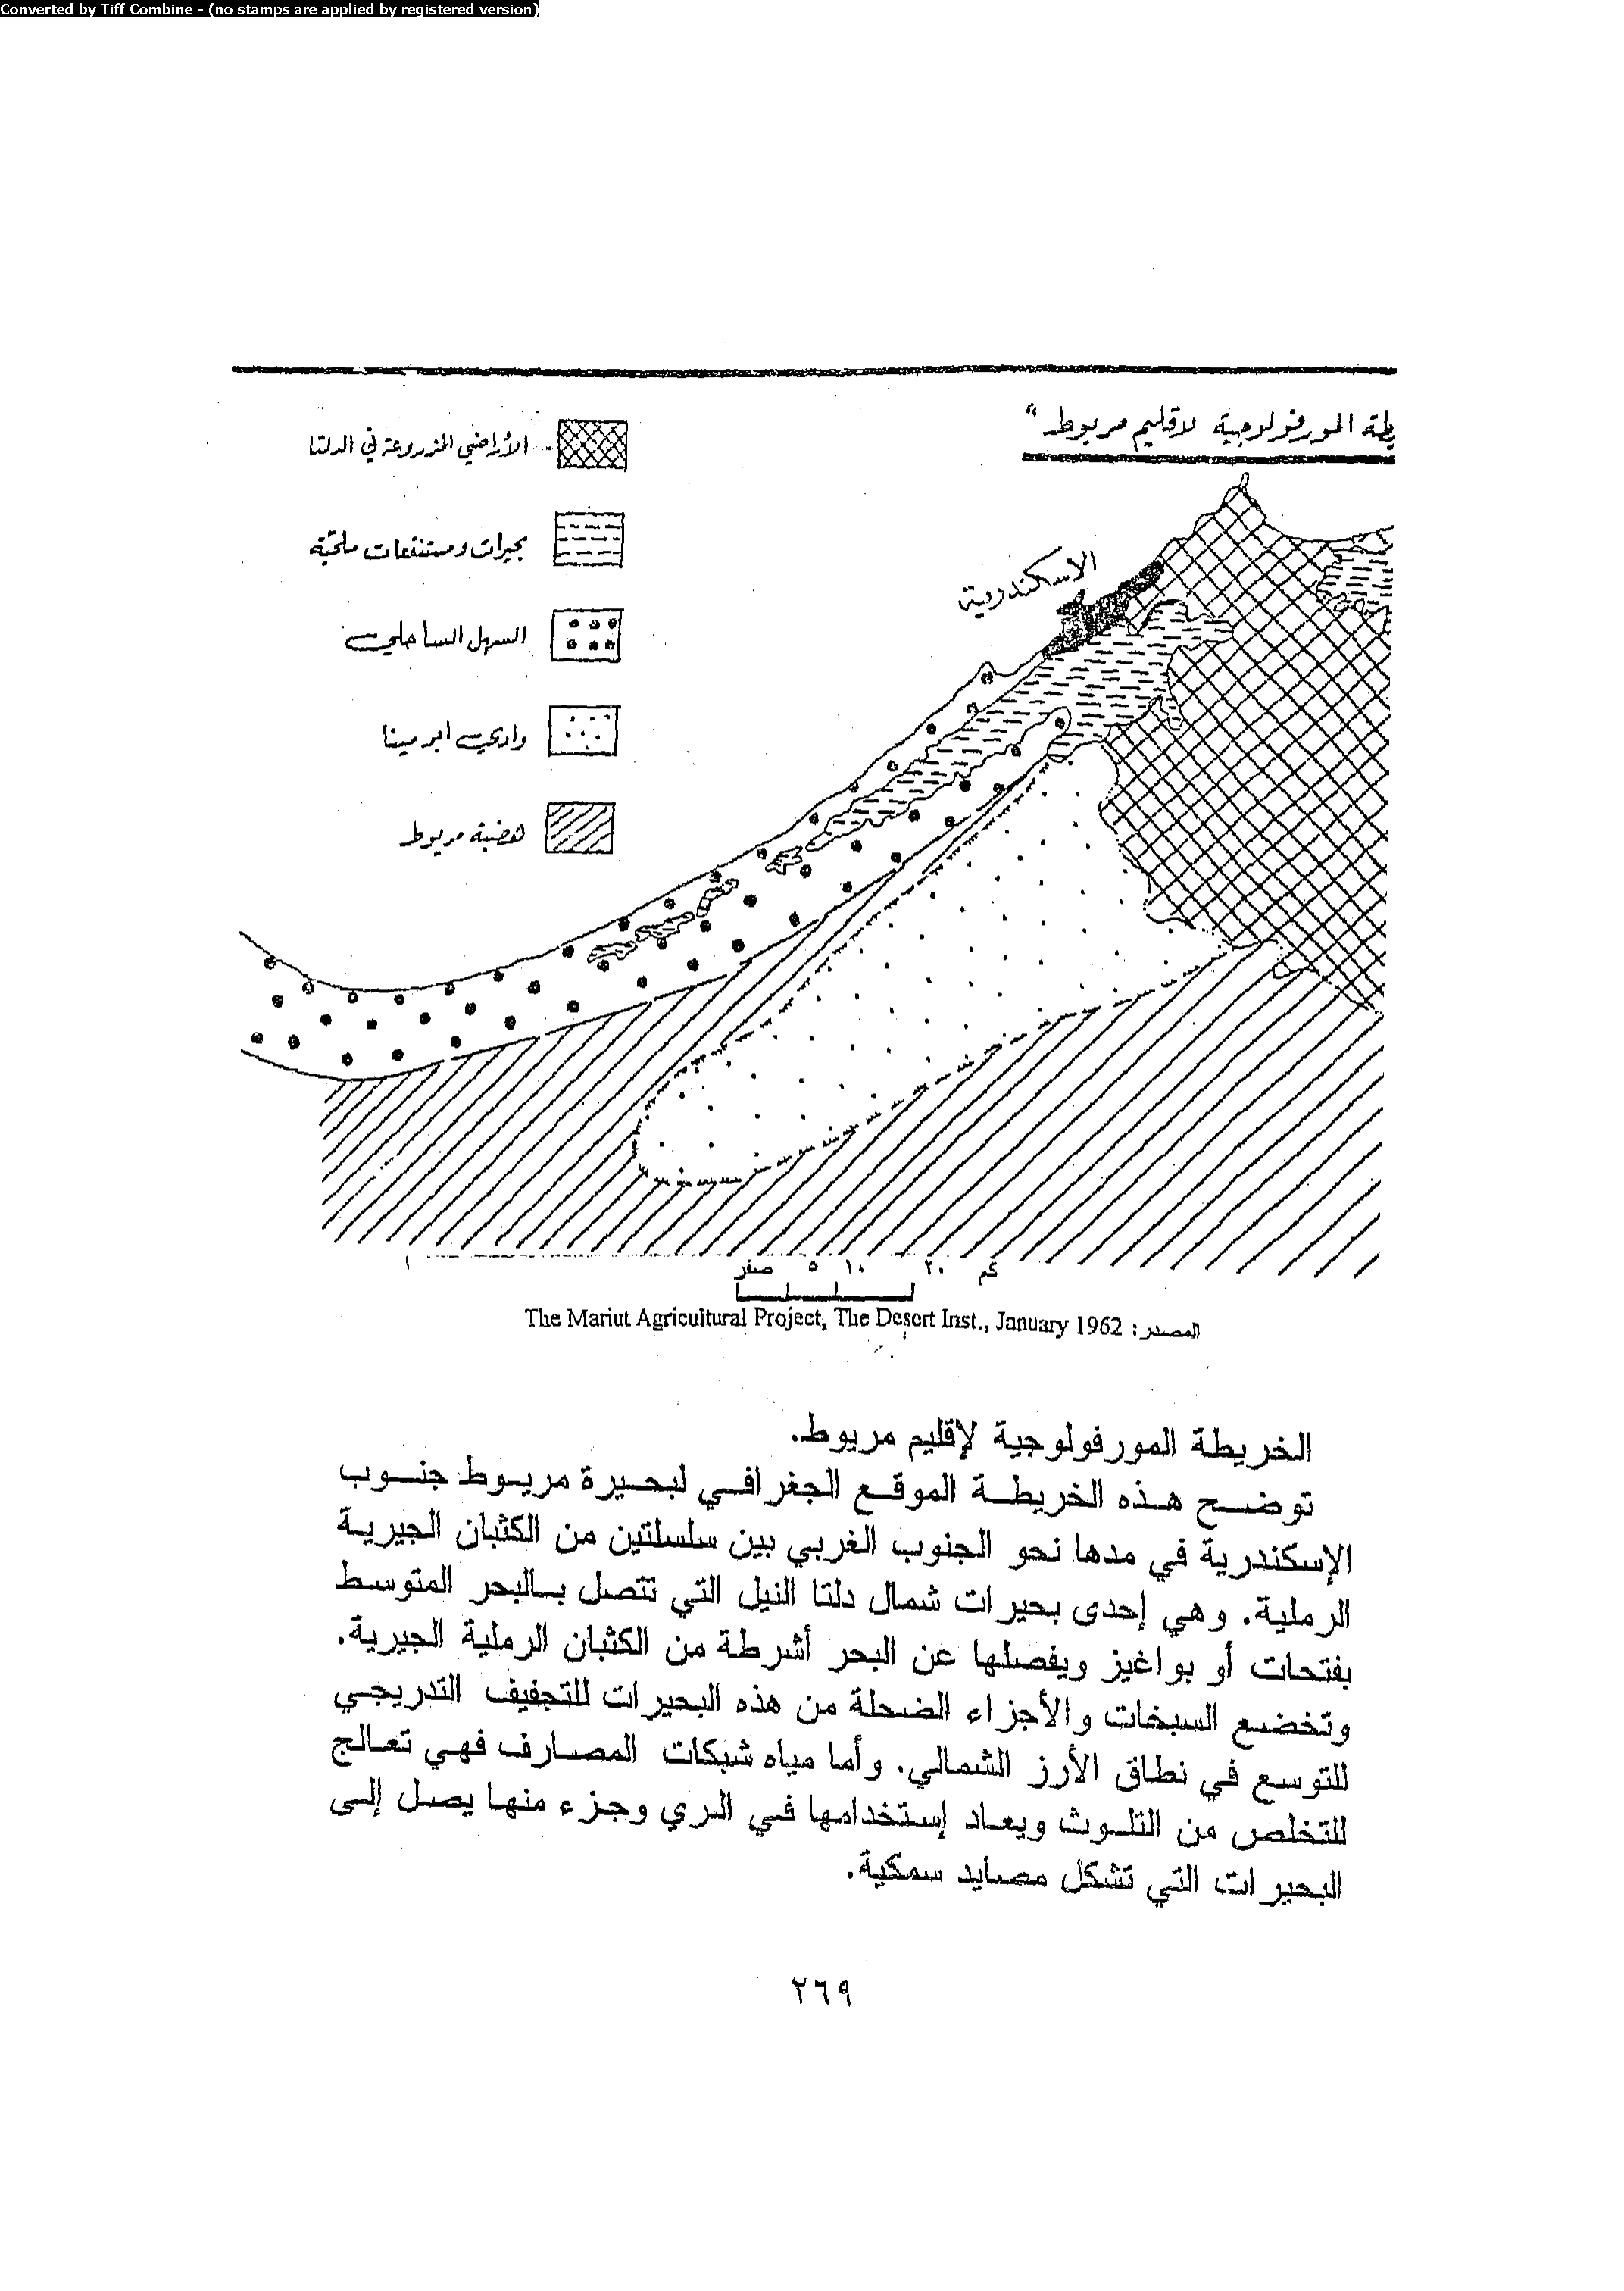 Converted by Tiff Combine - (no stamps are applied by registered version)
يطة المورفولوجية لاقليم مريوط "
الأراضي المزروعة في الدلتا
بحيرات ومستنقعات ملحية
السهل الساحلي
وادي ابو مينا
هضبة مريوط
الاسكندرية
صفر ٥ ١٠ ٢٠ كم
المصدر: The Mariut Agricultural Project, The Desert Inst., January 1962
الخريطة المورفولوجية لإقليم مريوط.
توضح هذه الخريطة الموقع الجغرافي لبحيرة مريوط جنوب
الإسكندرية في مدها نحو الجنوب الغربي بين سلسلتين من الكثبان الجيرية
الرملية. وهي إحدى بحيرات شمال دلتا النيل التي تتصل بالبحر المتوسط
بفتحات أو بواغيز ويفصلها عن البحر أشرطة من الكثبان الرملية الجيرية.
وتخضع السبخات والأجزاء الضحلة من هذه البحيرات للتجفيف التدريجي
للتوسع في نطاق الأرز الشمالي. وأما مياه شبكات المصارف فهي تعالج
للتخلص من التلوث ويعاد إستخدامها في الري وجزء منها يصل إلى
البحيرات التي تشكل مصايد سمكية.
٢٦٩